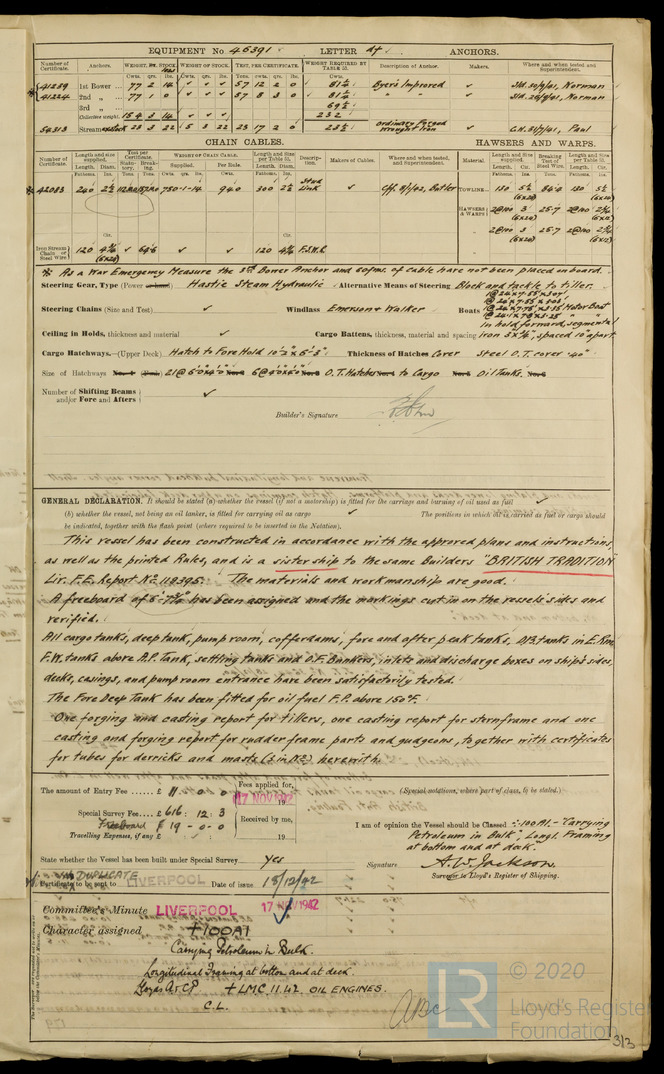 EQUIPMENT No 46391 LETTER ANCHORS.
Number of Certificate. Anchors. WEIGHT, EX. STOCK WEIGHT OF STOCK. TEST, PER CERTIFICATE. WEIGHT REQUIRED BY TABLE 53. Description of Anchor. Makers. Where and when tested and Superintendent.
Cwts. qrs. lbs. Cwts. qrs. lbs. Tons. Cwts. qrs. lbs. Cwts.
41239 1st Bower 77 2 14 57 12 2 0 81½ Byers Improved Sld. 30/9/41, Norman
41224 2nd „ 77 1 0 57 8 3 0 81½ „ Sld. 26/9/41, Norman
3rd „ 69½
Collective weight 154 3 14 232
54313 Stream 23 3 22 5 3 22 23 17 2 0 23½ Ordinary Forged Wrought Iron G.H. 31/7/41, Paul
CHAIN CABLES. HAWSERS AND WARPS.
Number of Certificate. Length and size supplied. Test per Certificate. WEIGHT OF CHAIN CABLE. Length and size per Table 53. Description. Makers of Cables. Where and when tested, and Superintendent. Material. Length and Size supplied. Breaking Test of Steel Wire. Length and Size per Table 53.
42083 240 2½ 750-1-14 940 300 2½ Stud Link Cff. 8/1/42, Butler TOWLINE 130 5½ 86.2 130 5½
(6x24) (6x24)
HAWSERS & WARPS 2@100 3 25.7 2@100 2¾
(6x24) (6x12)
2@100 3 25.7 2@100 2¾
(6x24) (6x12)
Iron Stream Chain or Steel Wire 120 4¾ 64.6 120 4¾ F.S.W.R.
(6x24)
* As a War Emergency Measure the 3rd Bower Anchor and 60fms. of cable have not been placed on board.
Steering Gear, Type (Power) Hastie Steam Hydraulic Alternative Means of Steering Block and tackle to tiller.
Steering Chains (Size and Test) Windlass Emerson & Walker Boats
Motor Boat
Ceiling in Holds, thickness and material Cargo Battens, thickness, material and spacing In hold forward, segmental iron spaced 10" apart
Cargo Hatchways.—(Upper Deck) Hatch to Fore Hold 10'2" x 6'3" Thickness of Hatches Cover Steel O.T. cover .40"
Size of Hatchways 21 @ 6'0" x 4'0" 6 @ 4'0" x 6'0" O.T. Hatches to Cargo Oil Tanks.
Number of Shifting Beams and/or Fore and Afters
Builder's Signature
GENERAL DECLARATION. It should be stated (a) whether the vessel (if not a motorship) is fitted for the carriage and burning of oil used as fuel
(b) whether the vessel, not being an oil tanker, is fitted for carrying oil as cargo The positions in which oil is carried as fuel or cargo should
be indicated, together with the flash point (where required to be inserted in the Notation).
This vessel has been constructed in accordance with the approved plans and instructions,
as well as the printed Rules, and is a sister ship to the same Builders "BRITISH TRADITION"
Lir. F.E. Report No. 119395. The materials and workmanship are good.
A freeboard of has been assigned and the markings cut in on the vessel's sides and
verified.
All cargo tanks, deep tank, pump room, cofferdams, fore and after peak tanks, D.B. tanks in E. Rm.
F.W. tanks above A.P. Tank, settling tanks and O.F. Bunkers, inlets and discharge boxes on ship's sides,
decks, casings, and pump room entrance have been satisfactorily tested.
The Fore Deep Tank has been fitted for oil fuel F.P. above 150°F.
One forging and casting report for tillers, one casting report for sternframe and one
casting and forging report for rudder frame parts and gudgeons, together with certificates
for tubes for derricks and masts herewith.
The amount of Entry Fee £ 11 : 0 : 0 Fees applied for,
17 NOV 1942
(Special notations, where part of class, to be stated.)
Special Survey Fee £ 616 : 12 : 3 Received by me,
Freeboard £ 19 - 0 - 0
Travelling Expenses, if any £ 19
I am of opinion the Vessel should be Classed +100A1 - "Carrying
Petroleum in Bulk", Longl. Framing
at bottom and at deck.
State whether the Vessel has been built under Special Survey yes Signature A. W. Jackson.
Surveyor to Lloyd's Register of Shipping.
DUPLICATE
Certificate to be sent to LIVERPOOL Date of issue 18/12/42
Committee's Minute LIVERPOOL 17 NOV 1942
Character assigned +100A1
Carrying Petroleum in Bulk.
Longitudinal Framing at bottom and at deck.
Lloyds A & CP +LMC. 11.42 OIL ENGINES.
C.L.
LR
© 2020
Lloyd's Register
Foundation
313